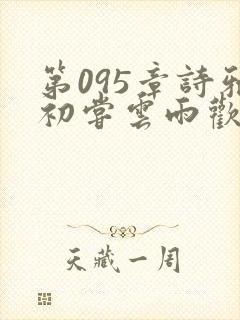 第095章詩雅
初嘗雲雨歡
天藏一周